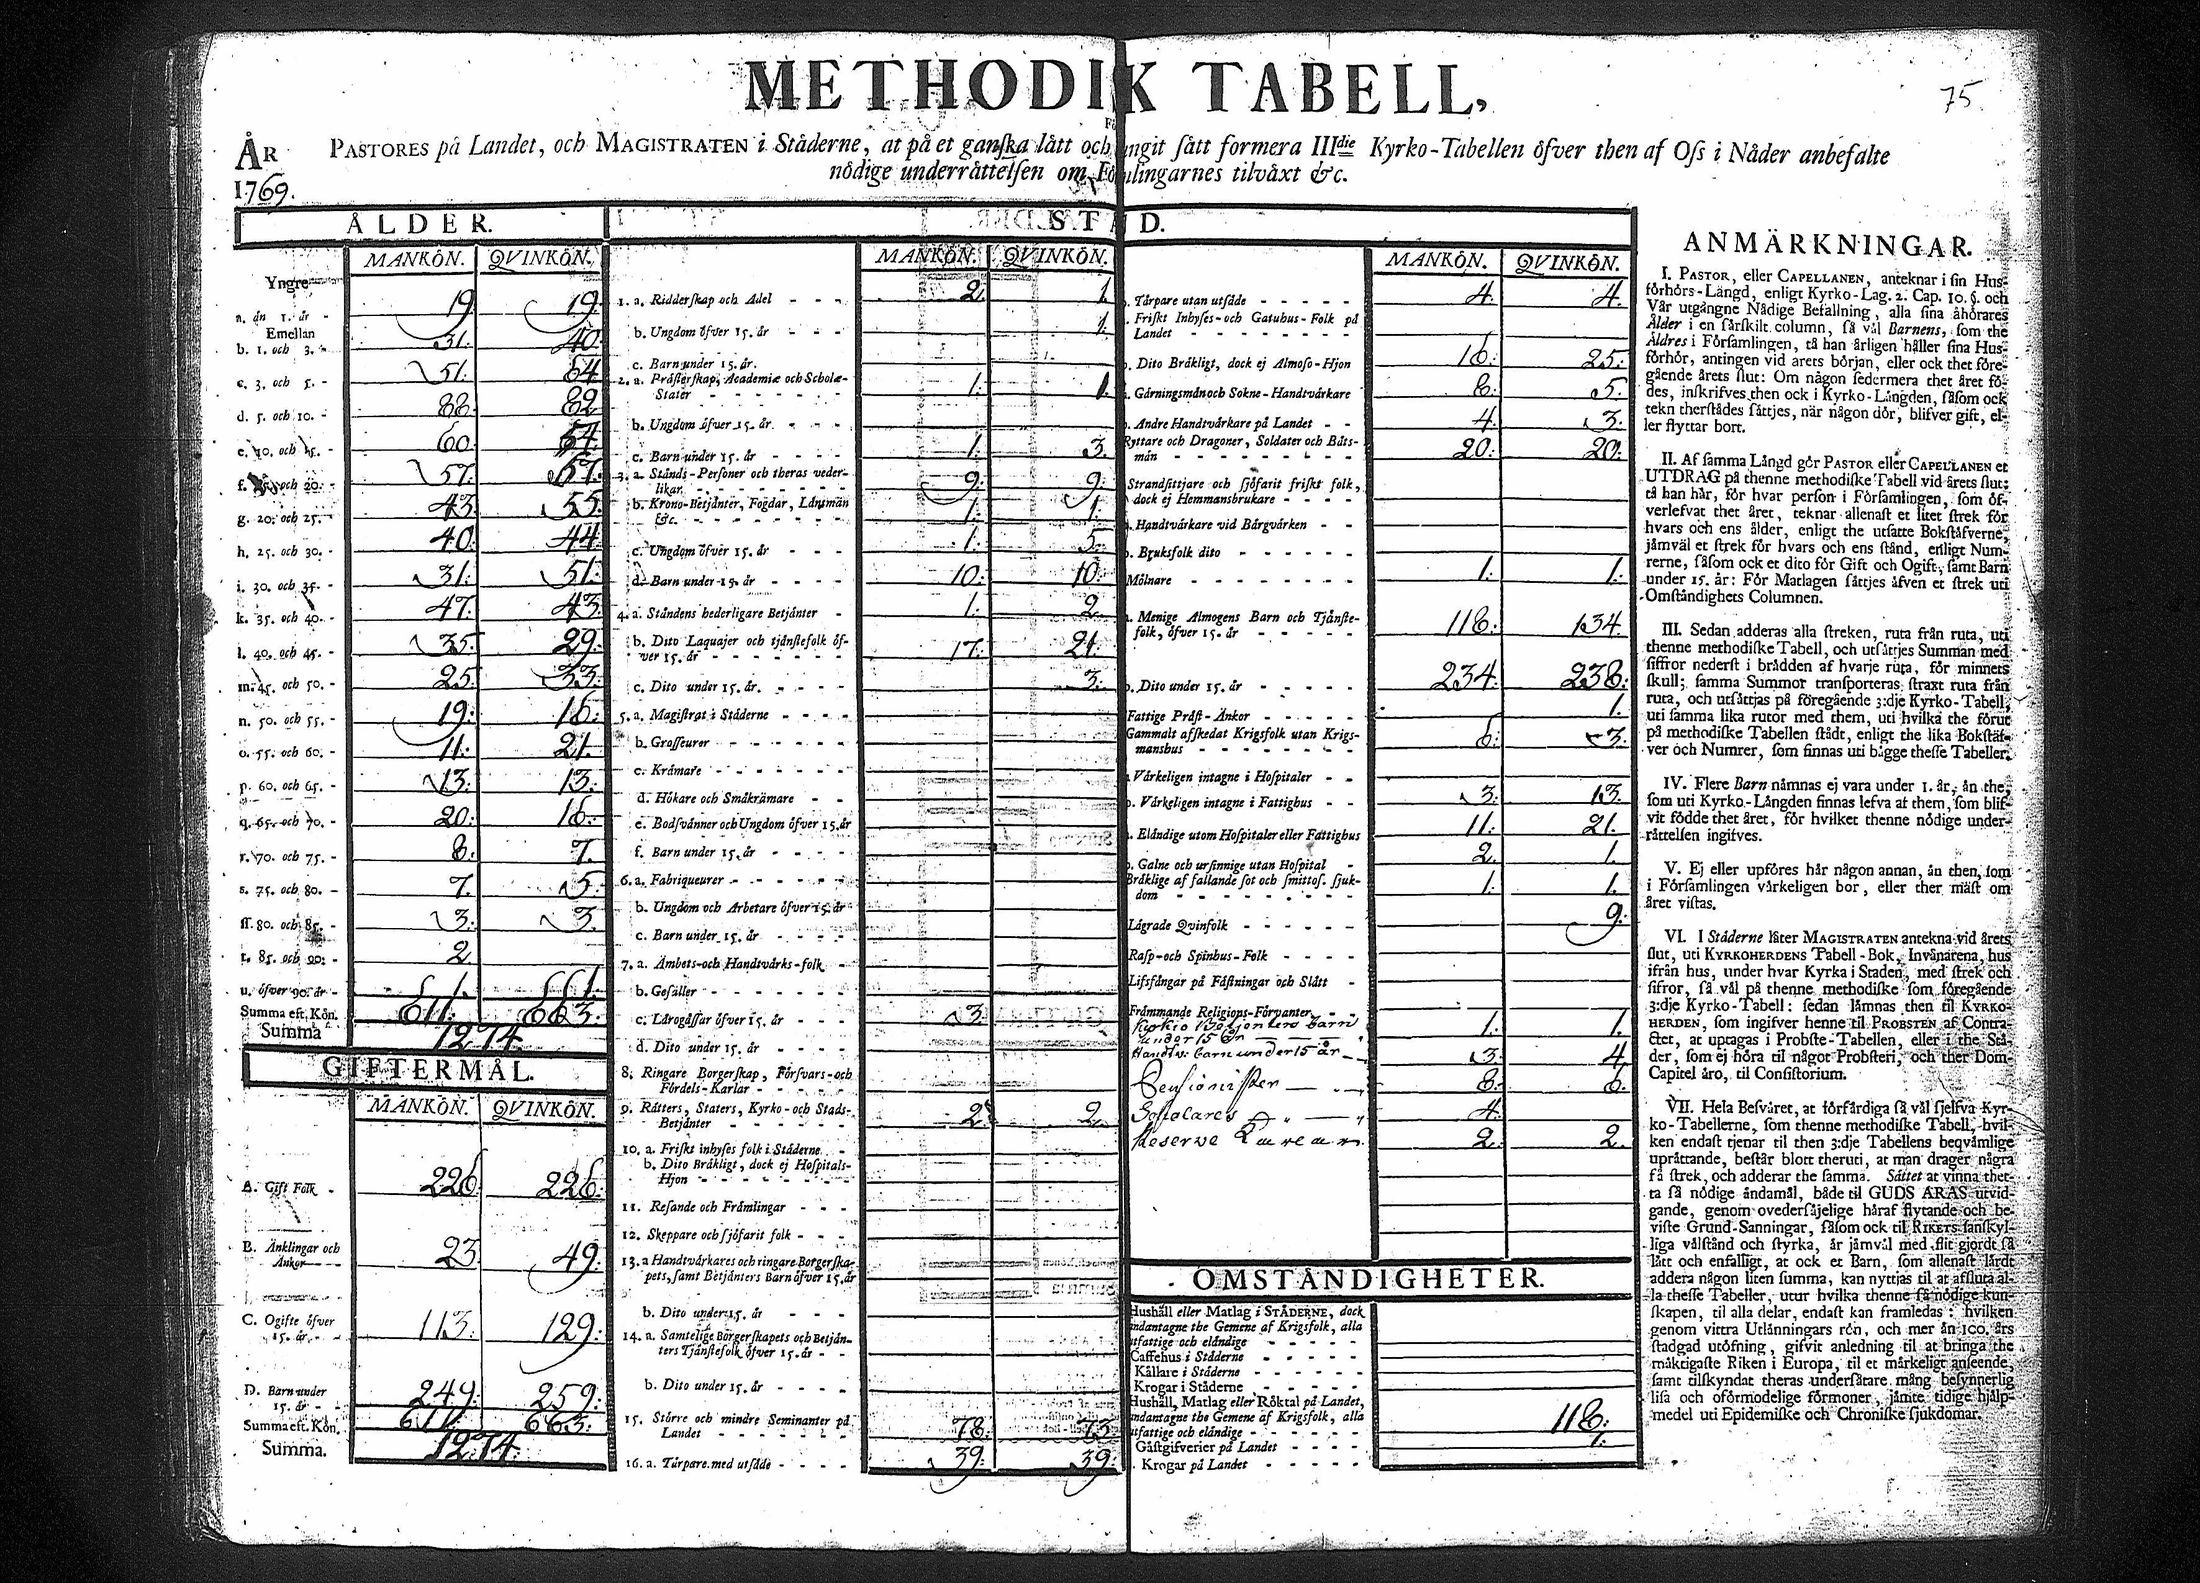 METHODIK TABELL,
75
ÅR PASTORES på Landet, och MAGISTRATEN i Ståderne, at på et ganska lått och ungit sått formera IIIdie Kyrko-Tabellen öfver then af Oss i Nåder anbefalte
1769. nödige underråttelsen om Församlingarnes tilvåxt &c.
ÅLDER.
MANKÖN. QVINKÖN.
Yngre
a. ån 1. år - 19 19.
Emellan
b. 1. och 3. - 31. 40.
c. 3. och 5. - 51. 64
d. 5. och 10. - 88. 82
e. 10. och 15. - 60. 54.
f. 15. och 20. - 57. 57.
g. 20. och 25. - 43. 55.
h. 25. och 30. - 40. 44.
i. 30. och 35. - 31. 51.
k. 35. och 40. - 47. 43.
l. 40. och 45. - 35. 29.
m. 45. och 50. - 25. 33.
n. 50. och 55. - 19. 16.
o. 55. och 60. - 11. 21.
p. 60. och 65. - 13. 13.
q. 65. och 70. - 20. 16.
r. 70. och 75. - 8. 7.
s. 75. och 80. - 7. 5.
ff. 80. och 85. - 3. 3.
t. 85. och 90. - 2
u. öfver 90. år - 1. 1.
Summa eft. Kön. 611. 663.
Summa 1274.
GIFTERMÅL.
MANKÖN. QVINKÖN.
A. Gift Folk - 226. 226.
B. Änklingar och
Änkor 23. 49.
C. Ogifte öfver
15. år. - 113. 129.
D. Barn under
15. år - 249. 259.
Summa eft. Kön. 611. 663.
Summa. 1274.
STÅND.
MANKÖN. QVINKÖN.
1. a. Ridderskap och Adel - - - 2. 1.
b. Ungdom öfver 15. år - - - 1.
c. Barn under 15. år.
2. a. Pråsterskap, Academiæ och Scholæ-
Stater - - - 1. 1.
b. Ungdom öfver 15. år. - - -
c. Barn under 15. år - - - 1. 3.
3. a. Stånds-Personer och theras veder-
likar. - - - 9. 9.
b. Krono-Betjånter, Fogdar, Lånsmån
&c. - - - 1. 1.
c. Ungdom öfver 15. år - - - 1. 5.
d. Barn under 15. år - - - 10. 10.
4. a. Ståndens hederligare Betjånter - 1. 2.
b. Dito Laquajer och tjånstefolk öf-
ver 15. år - - - 17. 21.
c. Dito under 15. år. - - - 3.
5. a. Magistrat i Ståderne - - -
b. Grosseurer - - -
c. Kråmare - - -
d. Hökare och Småkråmare - -
e. Bodsvånner och Ungdom öfver 15. år
f. Barn under 15. år - - -
6. a. Fabriqueurer - - -
b. Ungdom och Arbetare öfver 15. år
c. Barn under 15. år - - -
7. a. Åmbets-och Handtvårks-folk -
b. Gesåller - - -
c. Lårogåssar öfver 15. år - - - 3.
d. Dito under 15. år - - -
8. Ringare Borgerskap, Försvars-och
Fördels-Karlar - - -
9. Råtters, Staters, Kyrko-och Stads-
Betjånter - - - 2. 2.
10. a. Friskt inhyses folk i Ståderne -
b. Dito Bråkligt, dock ej Hospitals-
Hjon - - -
11. Resande och Fråmlingar - - -
12. Skeppare och sjöfarit folk - - -
13. a Handtvårkares och ringare Borgerska-
pets, samt Betjånters Barn öfver 15. år
b. Dito under 15. år - - -
14. a. Samtelige Borgerskapets och Betjån-
ters Tjånstefolk öfver 15. år - -
b. Dito under 15. år - - -
15. Större och mindre Seminanter på
Landet - - - 78. 73.
16. a. Tårpare med utsåde - - - 39. 39.
MANKÖN. QVINKÖN.
Tårpare utan utsåde - - - 4. 4.
Friskt Inhyses-och Gatuhus-Folk på
Landet - - -
Dito Bråkligt, dock ej Almoso-Hjon 16. 25.
Gårningsmån och Sokne-Handtvårkare 8. 5.
Andre Handtvårkare på Landet - - 4. 3.
Ryttare och Dragoner, Soldater och Båts-
mån - - - 20. 20.
Strandsittjare och sjöfarit friskt folk,
dock ej Hemmansbrukare - - -
Handtvårkare vid Bårgvårken - -
Bruksfolk dito - - -
Mölnare - - - 1. 1.
Menige Almogens Barn och Tjånste-
folk, öfver 15. år - - - 118. 134.
Dito under 15. år - - - 234. 238.
Fattige Pråst-Änkor - - - 1.
Gammalt afskedat Krigsfolk utan Krigs-
manshus - - - 6. 3.
Vårkeligen intagne i Hospitaler - -
Vårkeligen intagne i Fattighus - - 3. 13.
Elåndige utom Hospitaler eller Fattighus 11. 21.
Galne och ursinnige utan Hospital - 2. 1.
Bråklige af fallande sot och smittos. sjuk-
dom - - - 1. 1.
Lågrade Qvinfolk - - - 9.
Rasp-och Spinhus-Folk - - -
Lifsfångar på Fåstningar och Slått -
Fråmmande Religions-Förvanter - -
Kyrkio Betjenters barn
under 15 år 1. 1.
Handtv: barn under 15 år 3. 4.
Pensionister 8. 6.
Scholares 4.
Reserve Karlar 2. 2.
OMSTÅNDIGHETER.
Hushåll eller Matlag i STÅDERNE, dock
undantagne the Gemene af Krigsfolk, alla
utfattige och elåndige - - -
Caffehus i Ståderne - - -
Kållare i Ståderne - - -
Krogar i Ståderne - - -
Hushåll, Matlag eller Röktal på Landet,
undantagne the Gemene af Krigsfolk, alla
utfattige och elåndige - - - 118.
Gåstgifverier på Landet - - - 1.
Krogar på Landet - - -
ANMÄRKNINGAR.
I. PASTOR, eller CAPELLANEN, anteknar i sin Hus-
förhörs-Långd, enligt Kyrko-Lag. 2. Cap. 10. §. och
Vår utgångne Nådige Befallning, alla sina åhörares
Ålder i en sårskilt column, så vål Barnens, som the
Äldres i Församlingen, tå han årligen håller sina Hus-
förhör, antingen vid årets början, eller ock thet före-
gående årets slut: Om någon sedermera thet året fö-
des, inskrifves then ock i Kyrko-Långden, såsom ock
tekn therstådes såttjes, når någon dör, blifver gift, el-
ler flyttar bort.
II. Af samma Långd gör PASTOR eller CAPELLANEN et
UTDRAG på thenne methodiske Tabell vid årets slut:
tå han hår, för hvar person i Församlingen, som öf-
verlefvat thet året, teknar allenast et litet strek för
hvars och ens ålder, enligt the utsatte Bokståfverne,
jåmvål et strek för hvars och ens stånd, enligt Num-
rerne, såsom ock et dito för Gift och Ogift, samt Barn
under 15. år: För Matlagen såttjes åfven et strek uti
Omståndighets Columnen.
III. Sedan adderas alla streken, ruta från ruta, uti
thenne methodiske Tabell, och utsåttjes Summan med
siffror nederst i brådden af hvarje ruta, för minnets
skull; samma Summor transporteras straxt ruta från
ruta, och utsåttjas på föregående 3:dje Kyrko-Tabell,
uti samma lika rutor med them, uti hvilka the förut
på methodiske Tabellen stådt, enligt the lika Bokståf-
ver och Numrer, som finnas uti bågge thesse Tabeller.
IV. Flere Barn nåmnas ej vara under 1. år, ån the,
som uti Kyrko-Långden finnas lefva af them, som blif-
vit födde thet året, för hvilket thenne nödige under-
råttelsen ingifves.
V. Ej eller upföres hår någon annan, ån then, som
i Församlingen vårkeligen bor, eller ther måst om
året vistas.
VI. I Ståderne låter MAGISTRATEN antekna vid årets
slut, uti KYRKOHERDENS Tabell-Bok, Invånarena, hus
ifrån hus, under hvar Kyrka i Staden, med strek och
sifror, så vål på thenne methodiske som föregående
3:dje Kyrko-Tabell: sedan låmnas then til KYRKO-
HERDEN, som ingifver henne til PROBSTEN af Contra-
ctet, at uptagas i Probste-Tabellen, eller i the Ståder,
der, som ej höra til något Probsteri, och ther Dom-
Capitel åro, til Consistorium.
VII. Hela Besvåret, at förfårdiga så vål sjelfva Kyr-
ko-Tabellerne, som thenne methodiske Tabell, hvil-
ken endast tjenar til then 3:dje Tabellens beqvåmlige
upråttande, beståR blott theruti, at man drager några
få strek, och adderar the samma. Såttet at vinna thet-
ta så nödige åndamål, både til GUDS ÅRAS utvid-
gande, genom ovedersåjelige håraf flytande och be-
viste Grund-Sanningar, såsom ock til RIKETS sanskyl-
liga vålstånd och styrka, år jåmvål med flit gjordt så
lått och enfalligt, at ock et Barn, som allenast lårdt
addera någon liten summa, kan nyttjas til at afsluta al-
la thesse Tabeller, utur hvilka thenne så nödige kun-
skapen, til alla delar, endast kan framledas: hvilken
genom vittra Utlånningars rön, och mer ån 100. års
stadgad utöfning, gifvit anledning til at bringa the
måktigaste Riken i Europa, til et mårkeligt anseende,
samt tilskyndat theras undersåtare mång besynnerlig
lisa och oförmodelige förmoner, jåmte tidige hjålp-
medel uti Epidemiske och Chroniske sjukdomar.